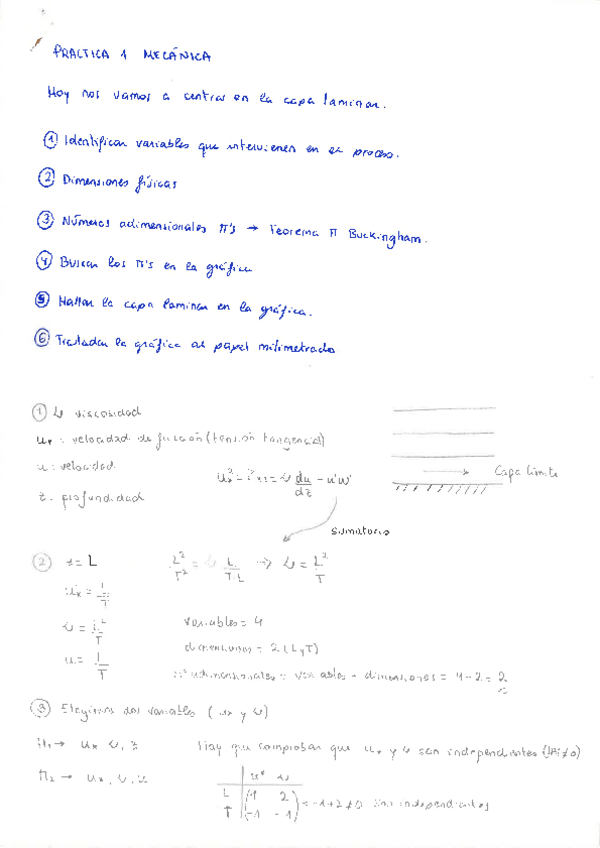 PRACTICA 1 MECÁNICA
Hoy nos vamos a centrar en la capa laminar.
① Identificar variables que intervienen en el proceso.
② Dimensiones físicas
③ Números adimensionales π's → Teorema π Buckingham.
④ Buscar los π's en la gráfica
⑤ Hallar la capa laminar en la gráfica.
⑥ Trasladar la gráfica al papel milimetrado
① ν viscosidad
u* : velocidad de fricción (tensión tangencial)
u: velocidad
z: profundidad
u*² = = ν du/dz - u'w'
Capa límite
sumatorio
② z = L
L²/T² = ν L/T·L → ν = L²/T
u* = L/T
ν = L²/T
u = L/T
variables = 4
dimensiones = 2 (L y T)
nº adimensionales = variables - dimensiones = 4-2 = 2
③ Elegimos dos variables (u* y ν)
π₁ → u*, ν, z
Hay que comprobar que u* y ν son independientes (|A|≠0)
π₂ → u*, ν, u
u* ν
L 1 2
T -1 -1 = -1+2 ≠ 0 Son independientes